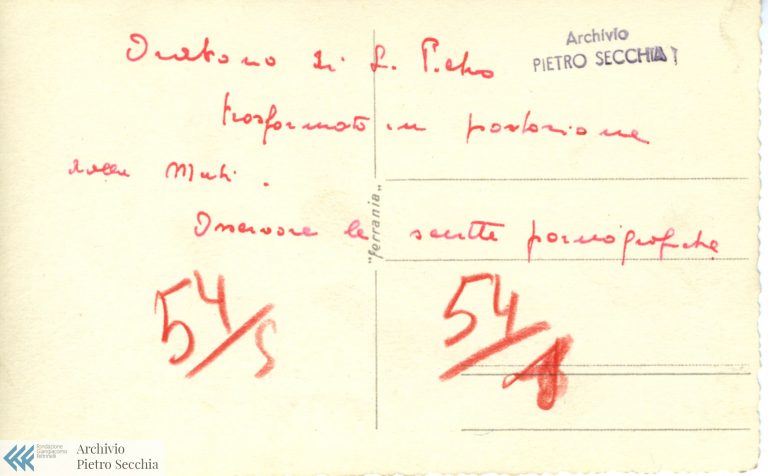 Oratorio di S. Pietro
Archivio
PIETRO SECCHIA
trasformato in postazione
dalla Muti.
Osservare le scritte pornografiche
"ferrania"
54/5
54/8
Fondazione
Giangiacomo
Feltrinelli
Archivio
Pietro Secchia